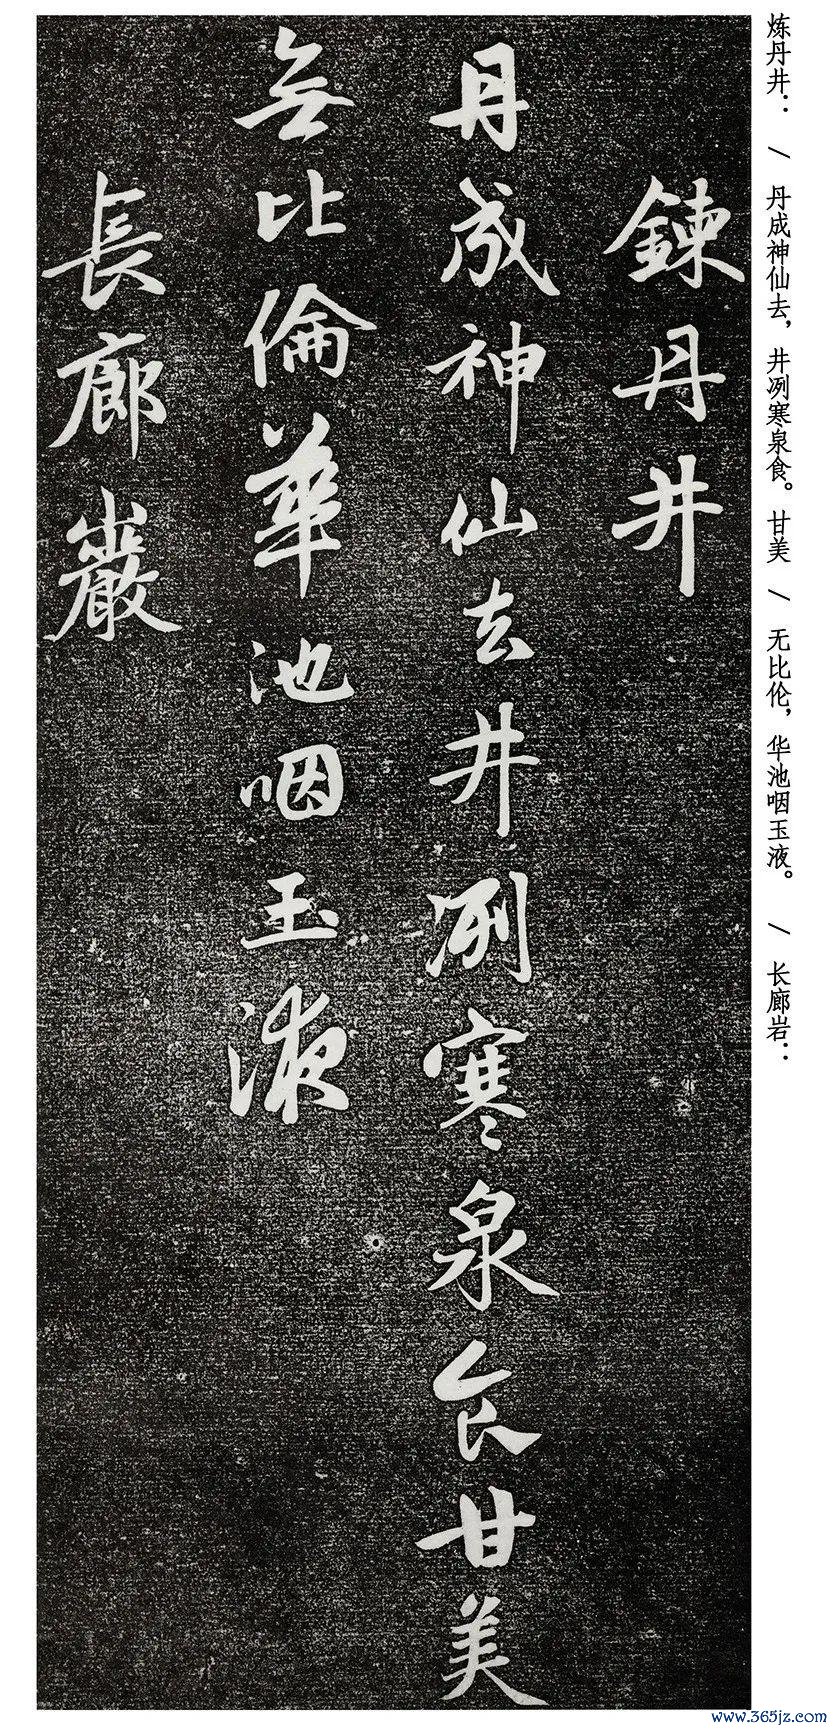 鍊丹井
丹成神仙去井冽寒泉食甘美
無比倫華池咽玉液
長廊巖
炼丹井： / 丹成神仙去，井冽寒泉食。甘美 / 无比伦，华池咽玉液。 / 长廊岩：
www.365jz.com